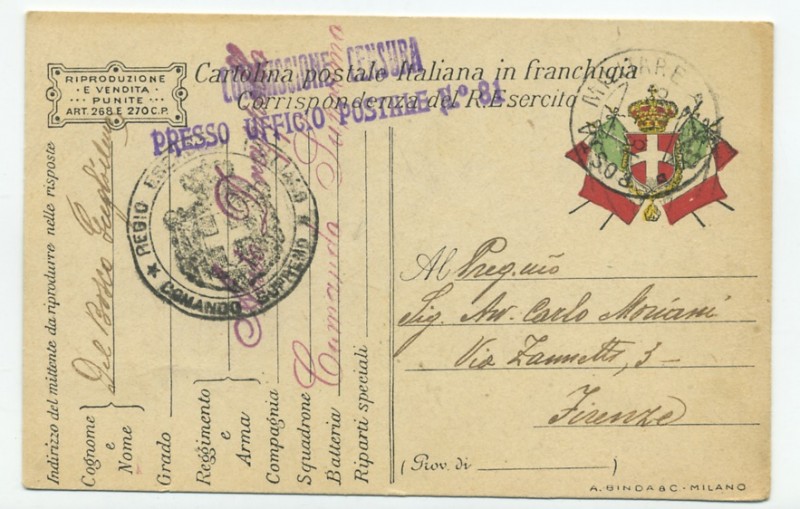 RIPRODUZIONE
E VENDITA
PUNITE
ART. 268 E 270 C.P.
Cartolina postale Italiana in franchigia
Corrispondenza del R. Esercito
COMMISSIONE CENSURA
PRESSO UFFICIO POSTALE N° 81
REGIO ESERCITO ITALIANO
COMANDO SUPREMO
Indirizzo del mittente da riprodurre nelle risposte
Cognome
e
Nome
Del Bosco
Grado
Reggimento
e
Arma
Compagnia
Squadrone
Batteria
Comando Supremo
Riparti speciali
Al Preg.mo
Sig. Av. Carlo Moriani
Via Zannetti, 3
Firenze
(Prov. di )
A. BINDA & C. - MILANO